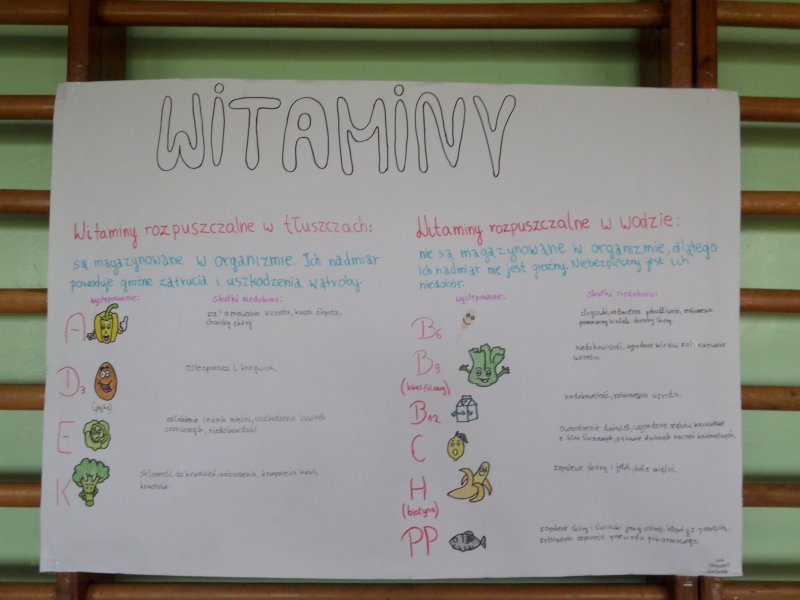 WITAMINY
Witaminy rozpuszczalne w tłuszczach:
są magazynowane w organizmie. Ich nadmiar
powoduje groźne zatrucia i uszkodzenia wątroby.
występowanie:
Skutki niedoboru:
A
choroby skóry
D3
(jajko)
Osteoporoza i krzywica
E
osłabienie i zanik mięśni, uszkodzenia krwinek
czerwonych, niedokrwistość
K
Skłonność do krwawień, zaburzenia krzepnięcia krwi,
krwotoki
Witaminy rozpuszczalne w wodzie:
nie są magazynowane w organizmie, dlatego
ich nadmiar nie jest groźny. Niebezpieczny jest ich
niedobór.
występowanie:
Skutki niedoboru:
B6
choroby skóry
B9
(kwas foliowy)
niedokrwistość,
wzrostu
B12
niedokrwistość, zaburzenia wzrostu
C
H
(biotyna)
zapalenie skóry i jelit, bóle mięśni
PP
zapalenie skóry i